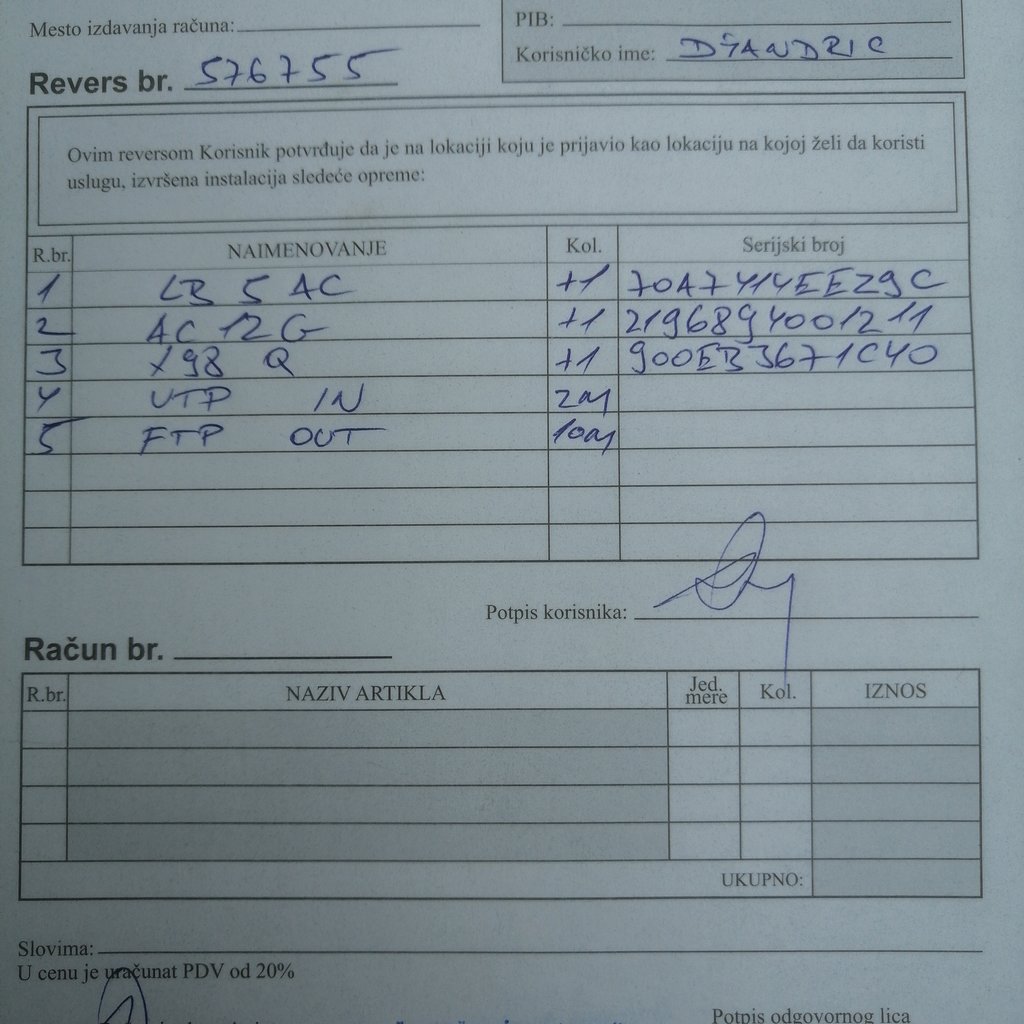 Mesto izdavanja računa:
PIB:
Korisničko ime: DŠANDRIC
Revers br. 576755
Ovim reversom Korisnik potvrđuje da je na lokaciji koju je prijavio kao lokaciju na kojoj želi da koristi
uslugu, izvršena instalacija sledeće opreme:
R.br. NAIMENOVANJE Kol. Serijski broj
1 LB 5 AC +1 70A7414EEZ9C
2 AC 12 G +1 2196894001211
3 X98 Q +1 900EB3671C40
4 UTP IN 2m
5 FTP OUT 10m
Potpis korisnika:
Račun br.
R.br. NAZIV ARTIKLA Jed. mere Kol. IZNOS
UKUPNO:
Slovima:
U cenu je uračunat PDV od 20%
Potpis odgovornog lica